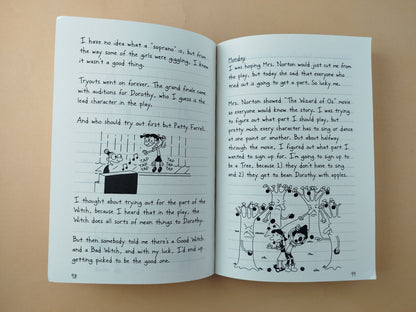 I have no idea what a "soprano" is, but from
the way some of the girls were giggling, I knew
it wasn't a good thing.
Tryouts went on forever. The grand finale came
with auditions for Dorothy, who I guess is the
lead character in the play.
And who should try out first but Patty Farrell.
TAP
TAP
TAP
TAP
I thought about trying out for the part of the
Witch, because I heard that in the play, the
Witch does all sorts of mean things to Dorothy.
But then somebody told me there's a Good Witch
and a Bad Witch, and with my luck, I'd end up
getting picked to be the good one.
98
Monday
I was hoping Mrs. Norton would just cut me from
the play, but today she said that everyone who
tried out is going to get a part. So lucky me.
Mrs. Norton showed "The Wizard of Oz" movie
so everyone would know the story. I was trying
to figure out what part I should play, but
pretty much every character has to sing or dance
at one point or another. But about halfway
through the movie, I figured out what part I
wanted to sign up for. I'm going to sign up to
be a Tree, because 1) they don't have to sing
and 2) they get to bean Dorothy with apples.
99